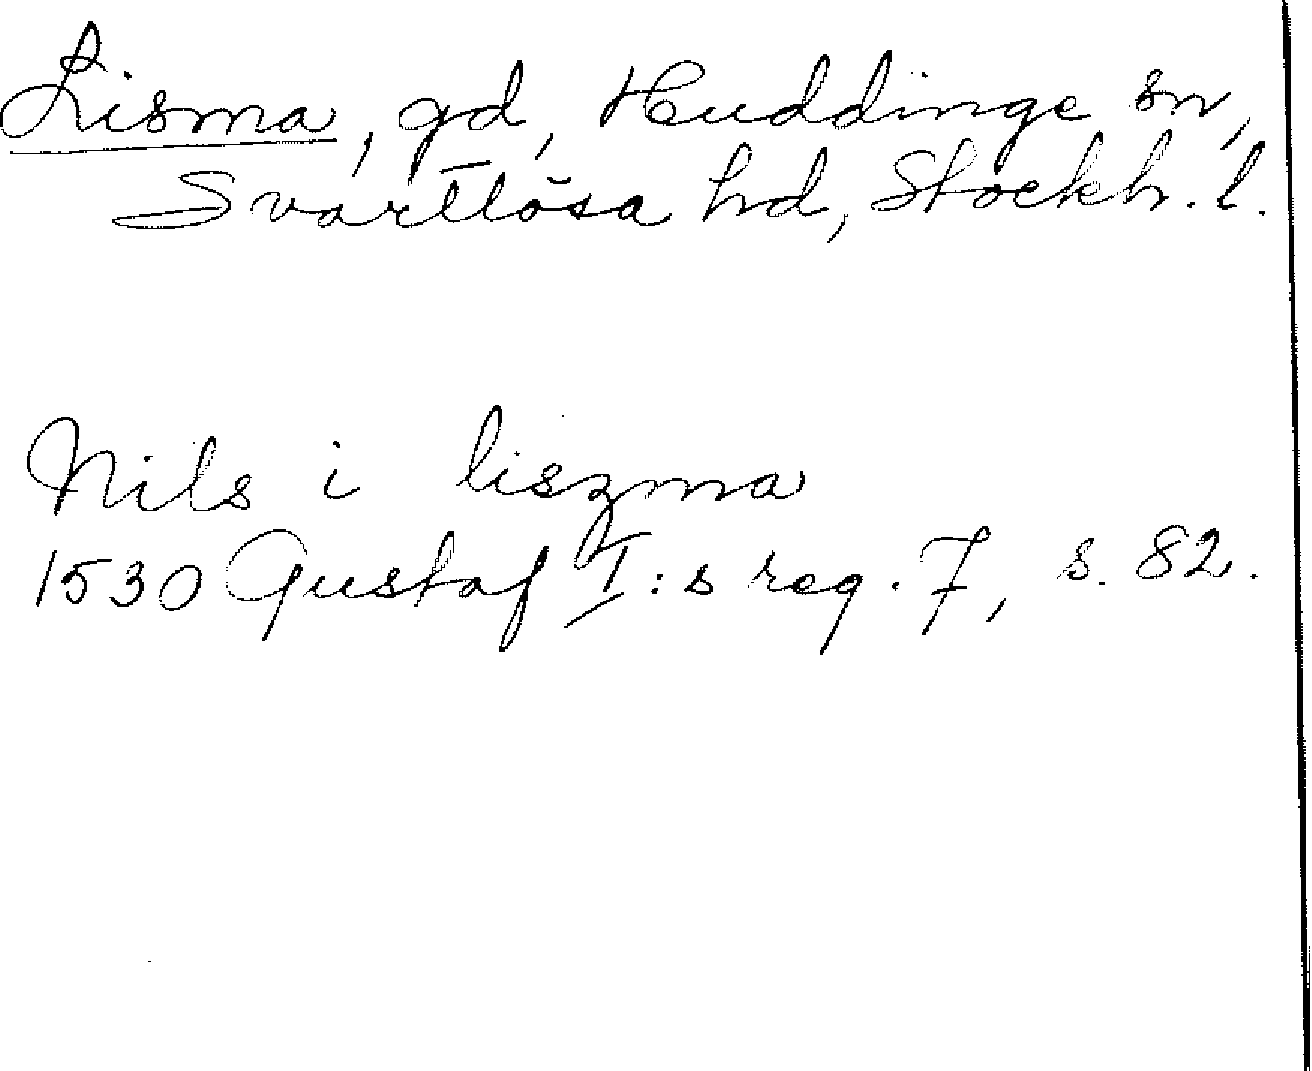 Lisma, gd, Huddinge sn,
Svartlösa hd, Stockh. l.
Nils i liszma
1530 Gustaf I:s reg. 7, s. 82.